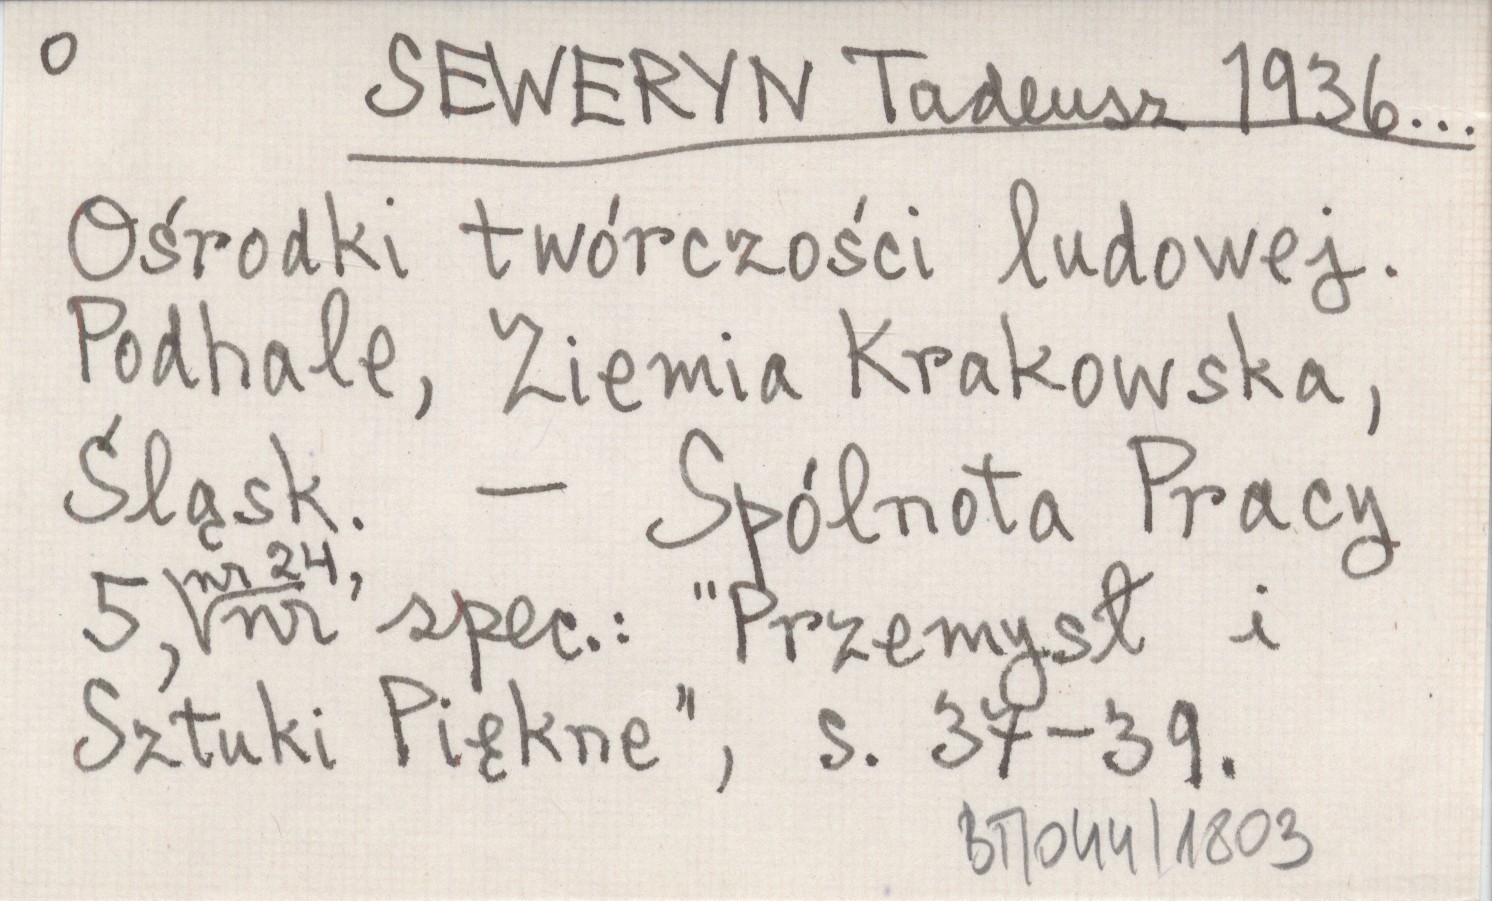 O
SEWERYN Tadeusz 1936...
Ośrodki twórczości ludowej.
Podhale, Ziemia Krakowska,
Śląsk. — Spólnota Pracy
5, nr 24, nr spec.: "Przemysł i
Sztuki Piękne", s. 37-39.
BT/044/1803